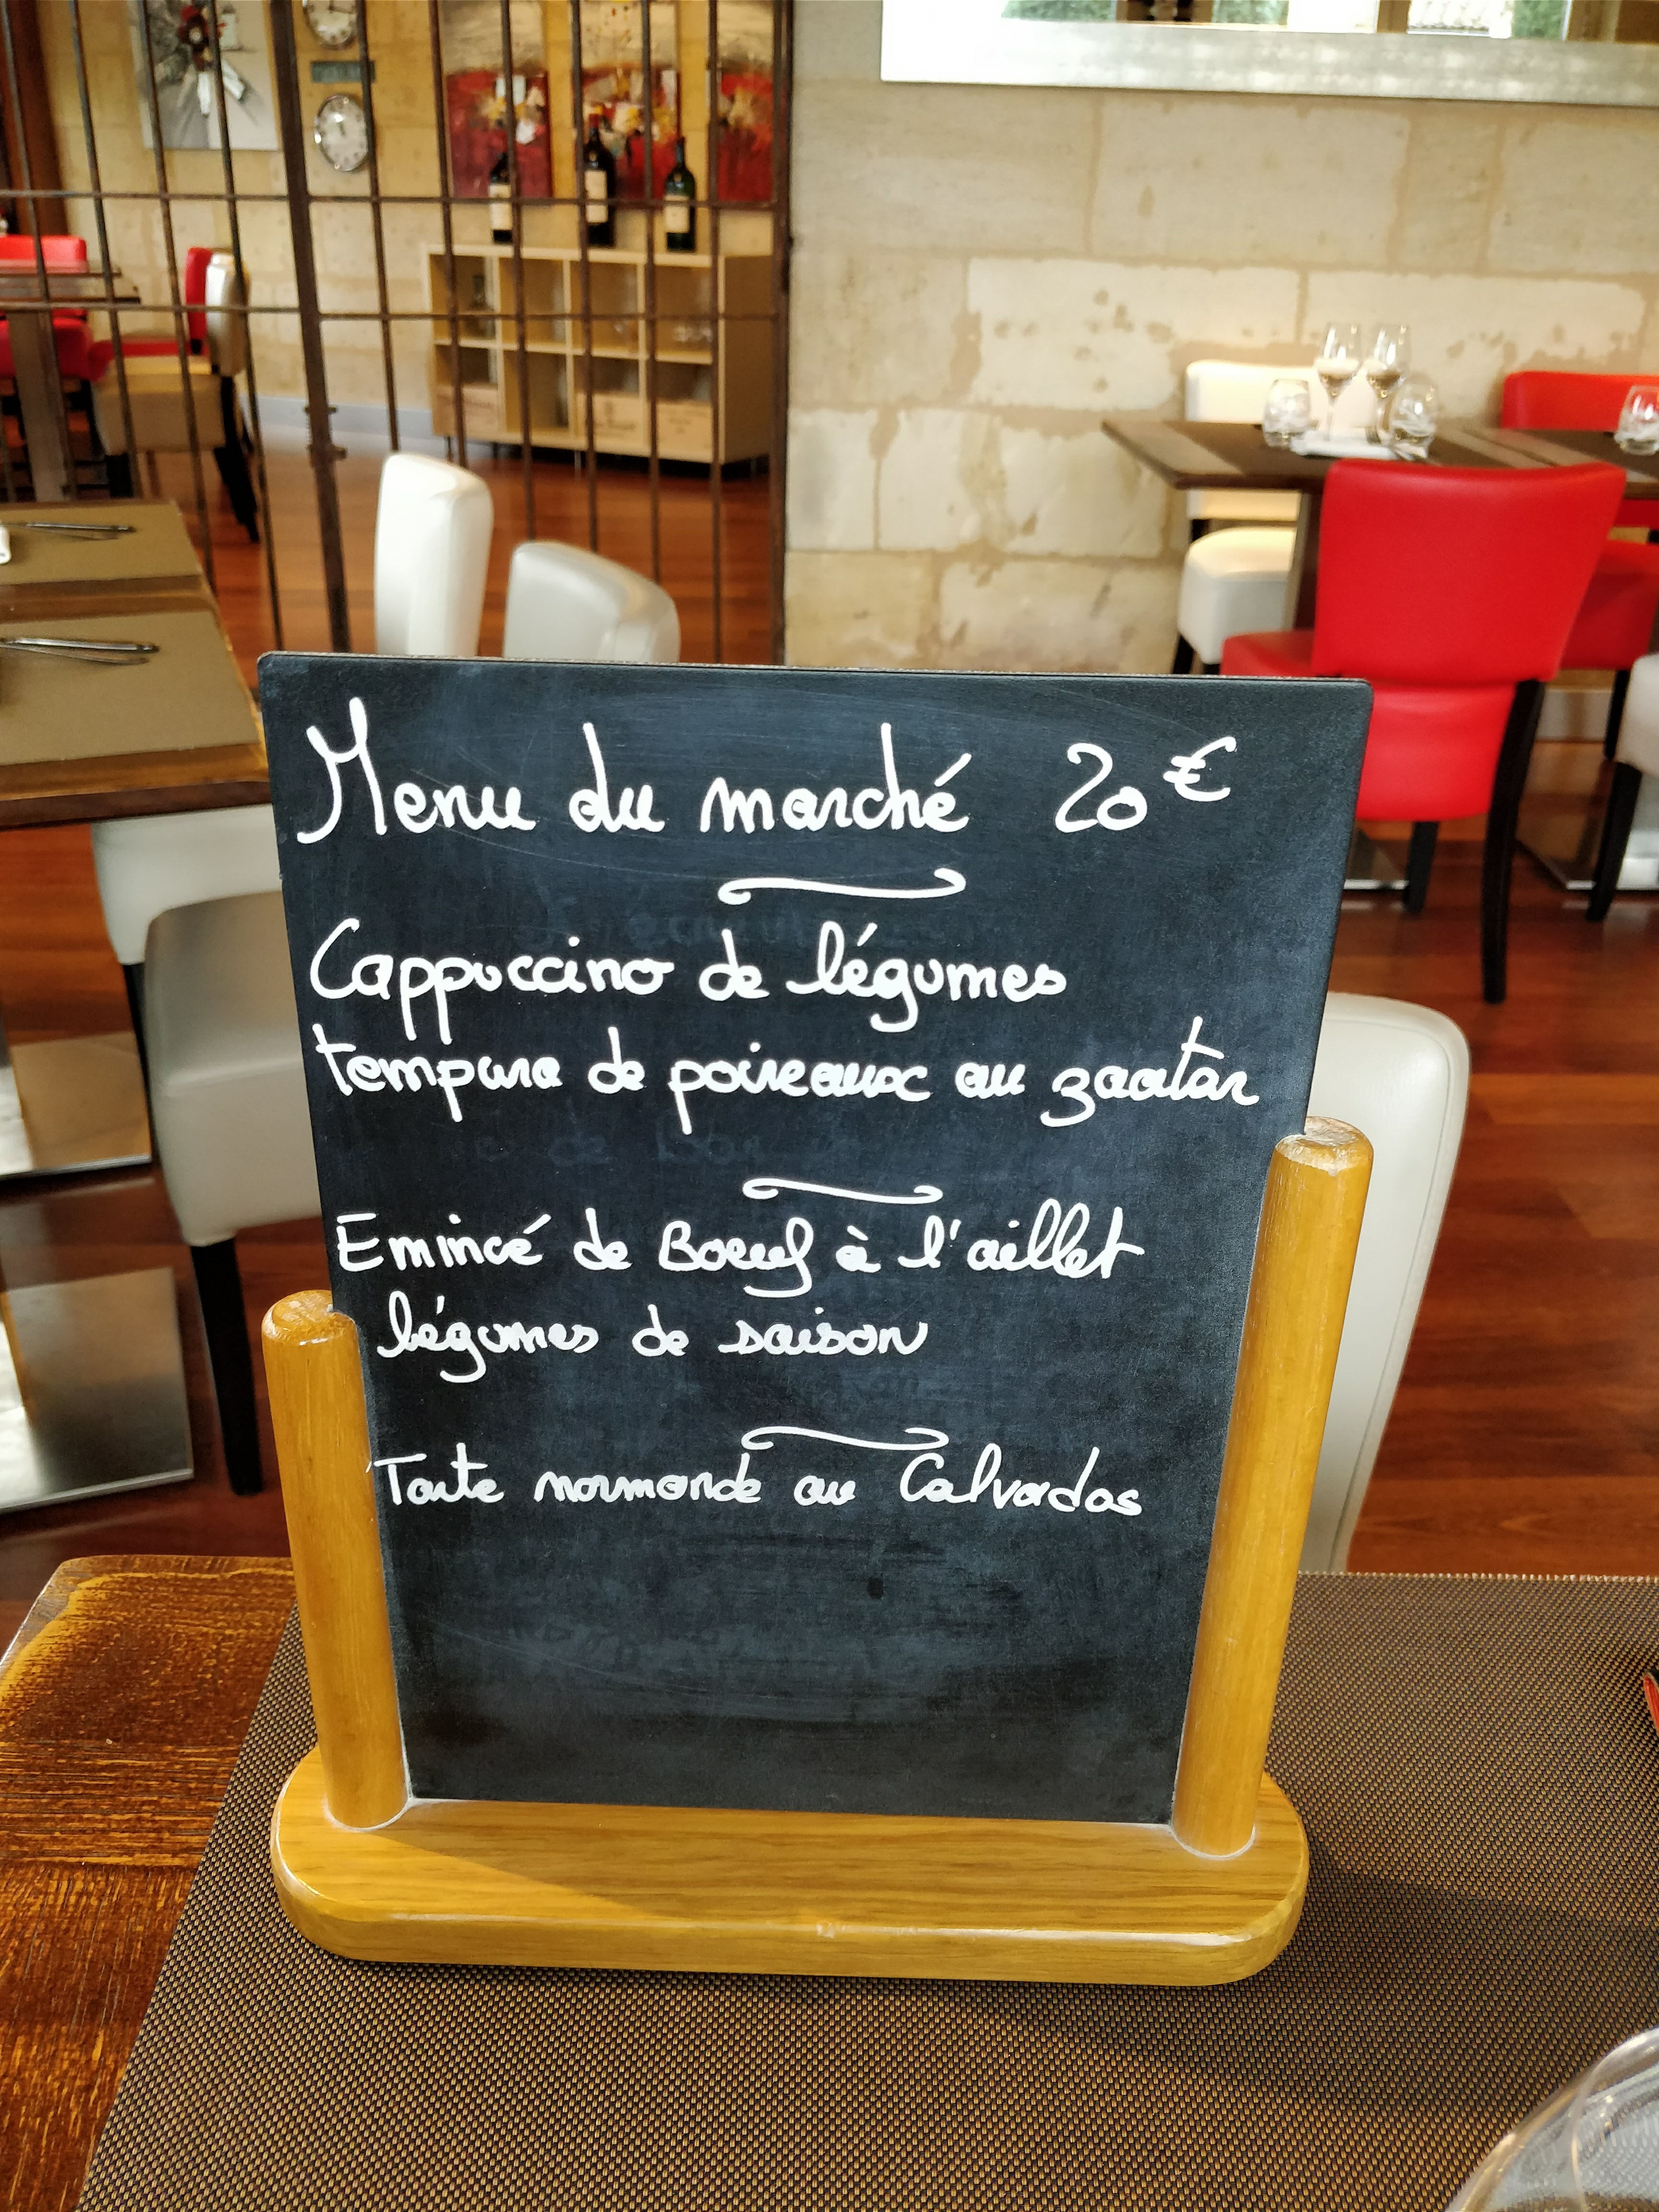 Menu du marché 20€
Cappuccino de légumes
tempura de poireaux au zaatar
Emincé de Boeuf à l'aillet
légumes de saison
Tarte normande au Calvados